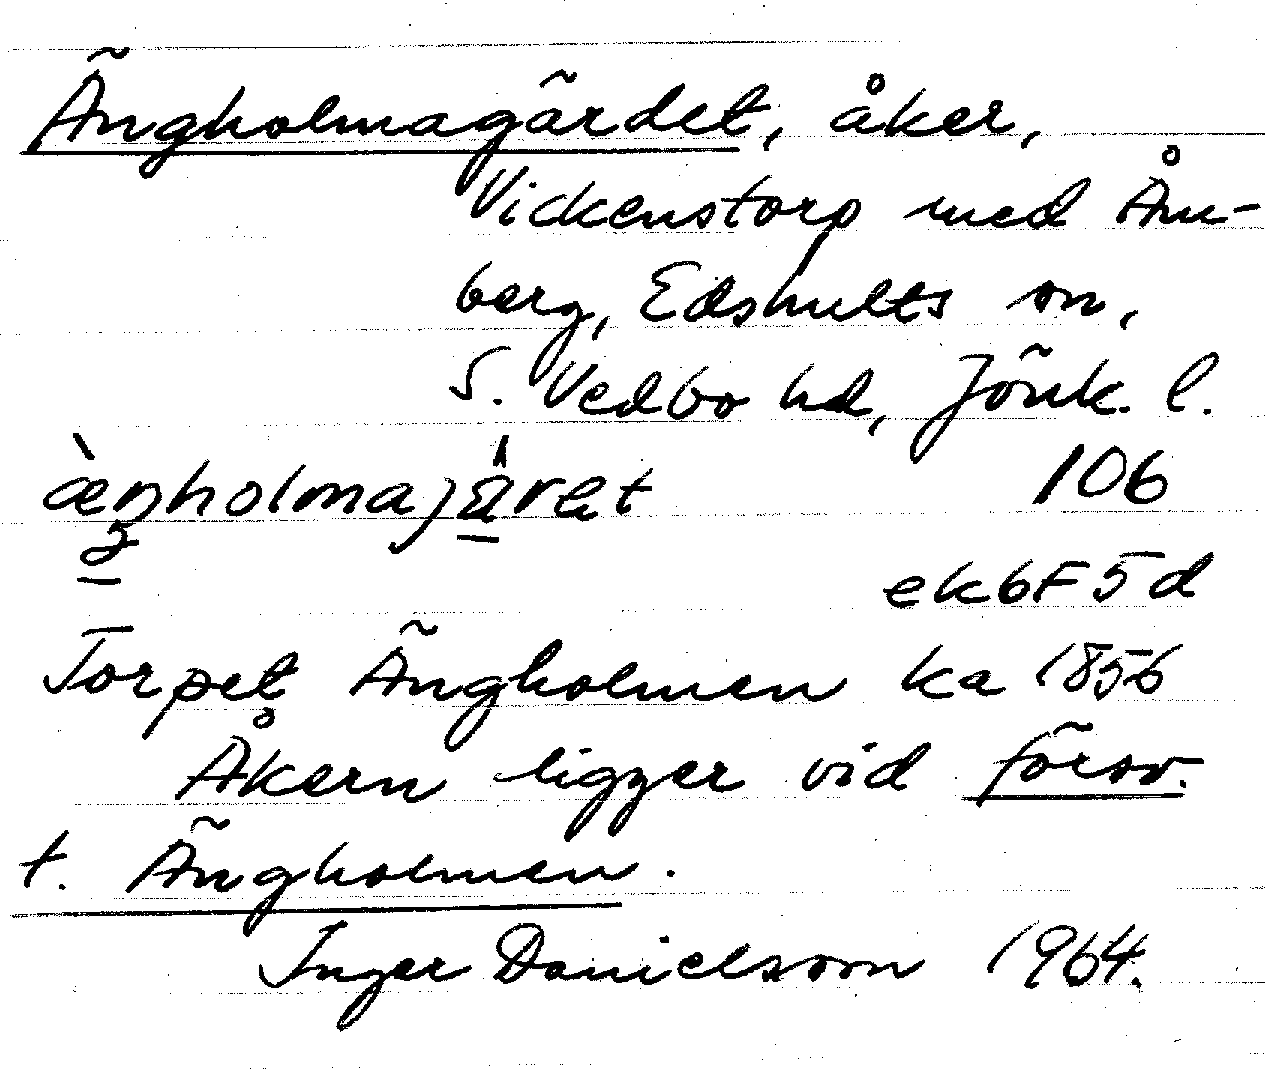 Ängholmagärdet, åker,
Vickenstorp med Åm-
berg, Edshults sn,
S. Vedbo hd, Jönk. l.
106
ek6F5d
Torpet Ängholmen ka 1856
Åkern ligger vid försv.
t. Ängholmen.
Inger Danielsson 1964.